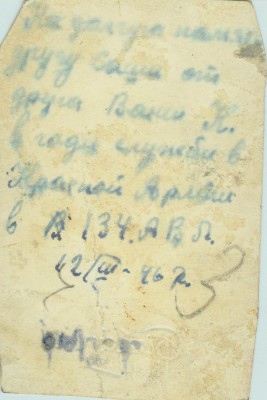 На долгую память
другу Саши от
друга Вани К.
в годы службы в
Красной Армии
в 134. А.В.П.
12/III-46 г.